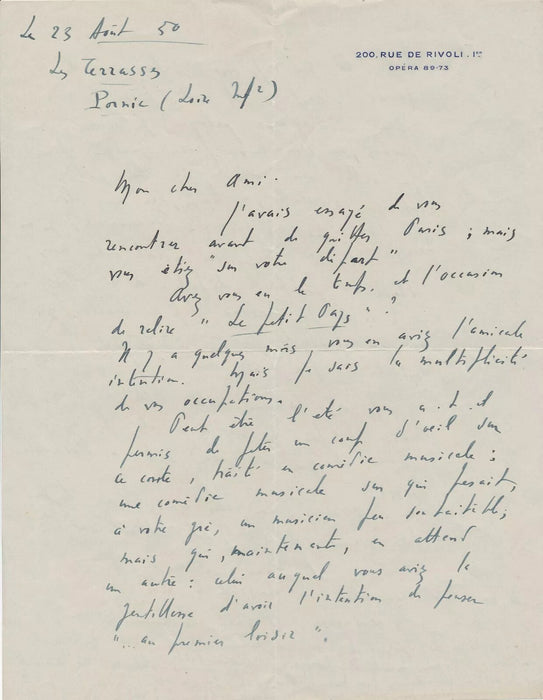 Le 23 Août 50
200, RUE DE RIVOLI. Ier
OPÉRA 89-73
Les Terrasses
Pornic (Loire Inf/2)
Mon cher Ami.
J'avais essayé de vous
rencontrer avant de quitter Paris ; mais
vous étiez "sur votre départ"
Avez vous eu le temps et l'occasion
de relire "Le Petit Pays" ?
Il y a quelques mois vous en aviez l'amicale
intention. Mais je sais la multiplicité
de vos occupations.
Peut être l'été vous a-t-il
permis de jeter un coup d'oeil sur
ce conte, traité en comédie musicale :
une comédie musicale sur qui pesait,
à votre gré, un musicien peu souhaitable ;
mais qui, maintenant, en attend
un autre : celui auquel vous aviez la
gentillesse d'avoir l'intention de penser
"... au premier loisir".